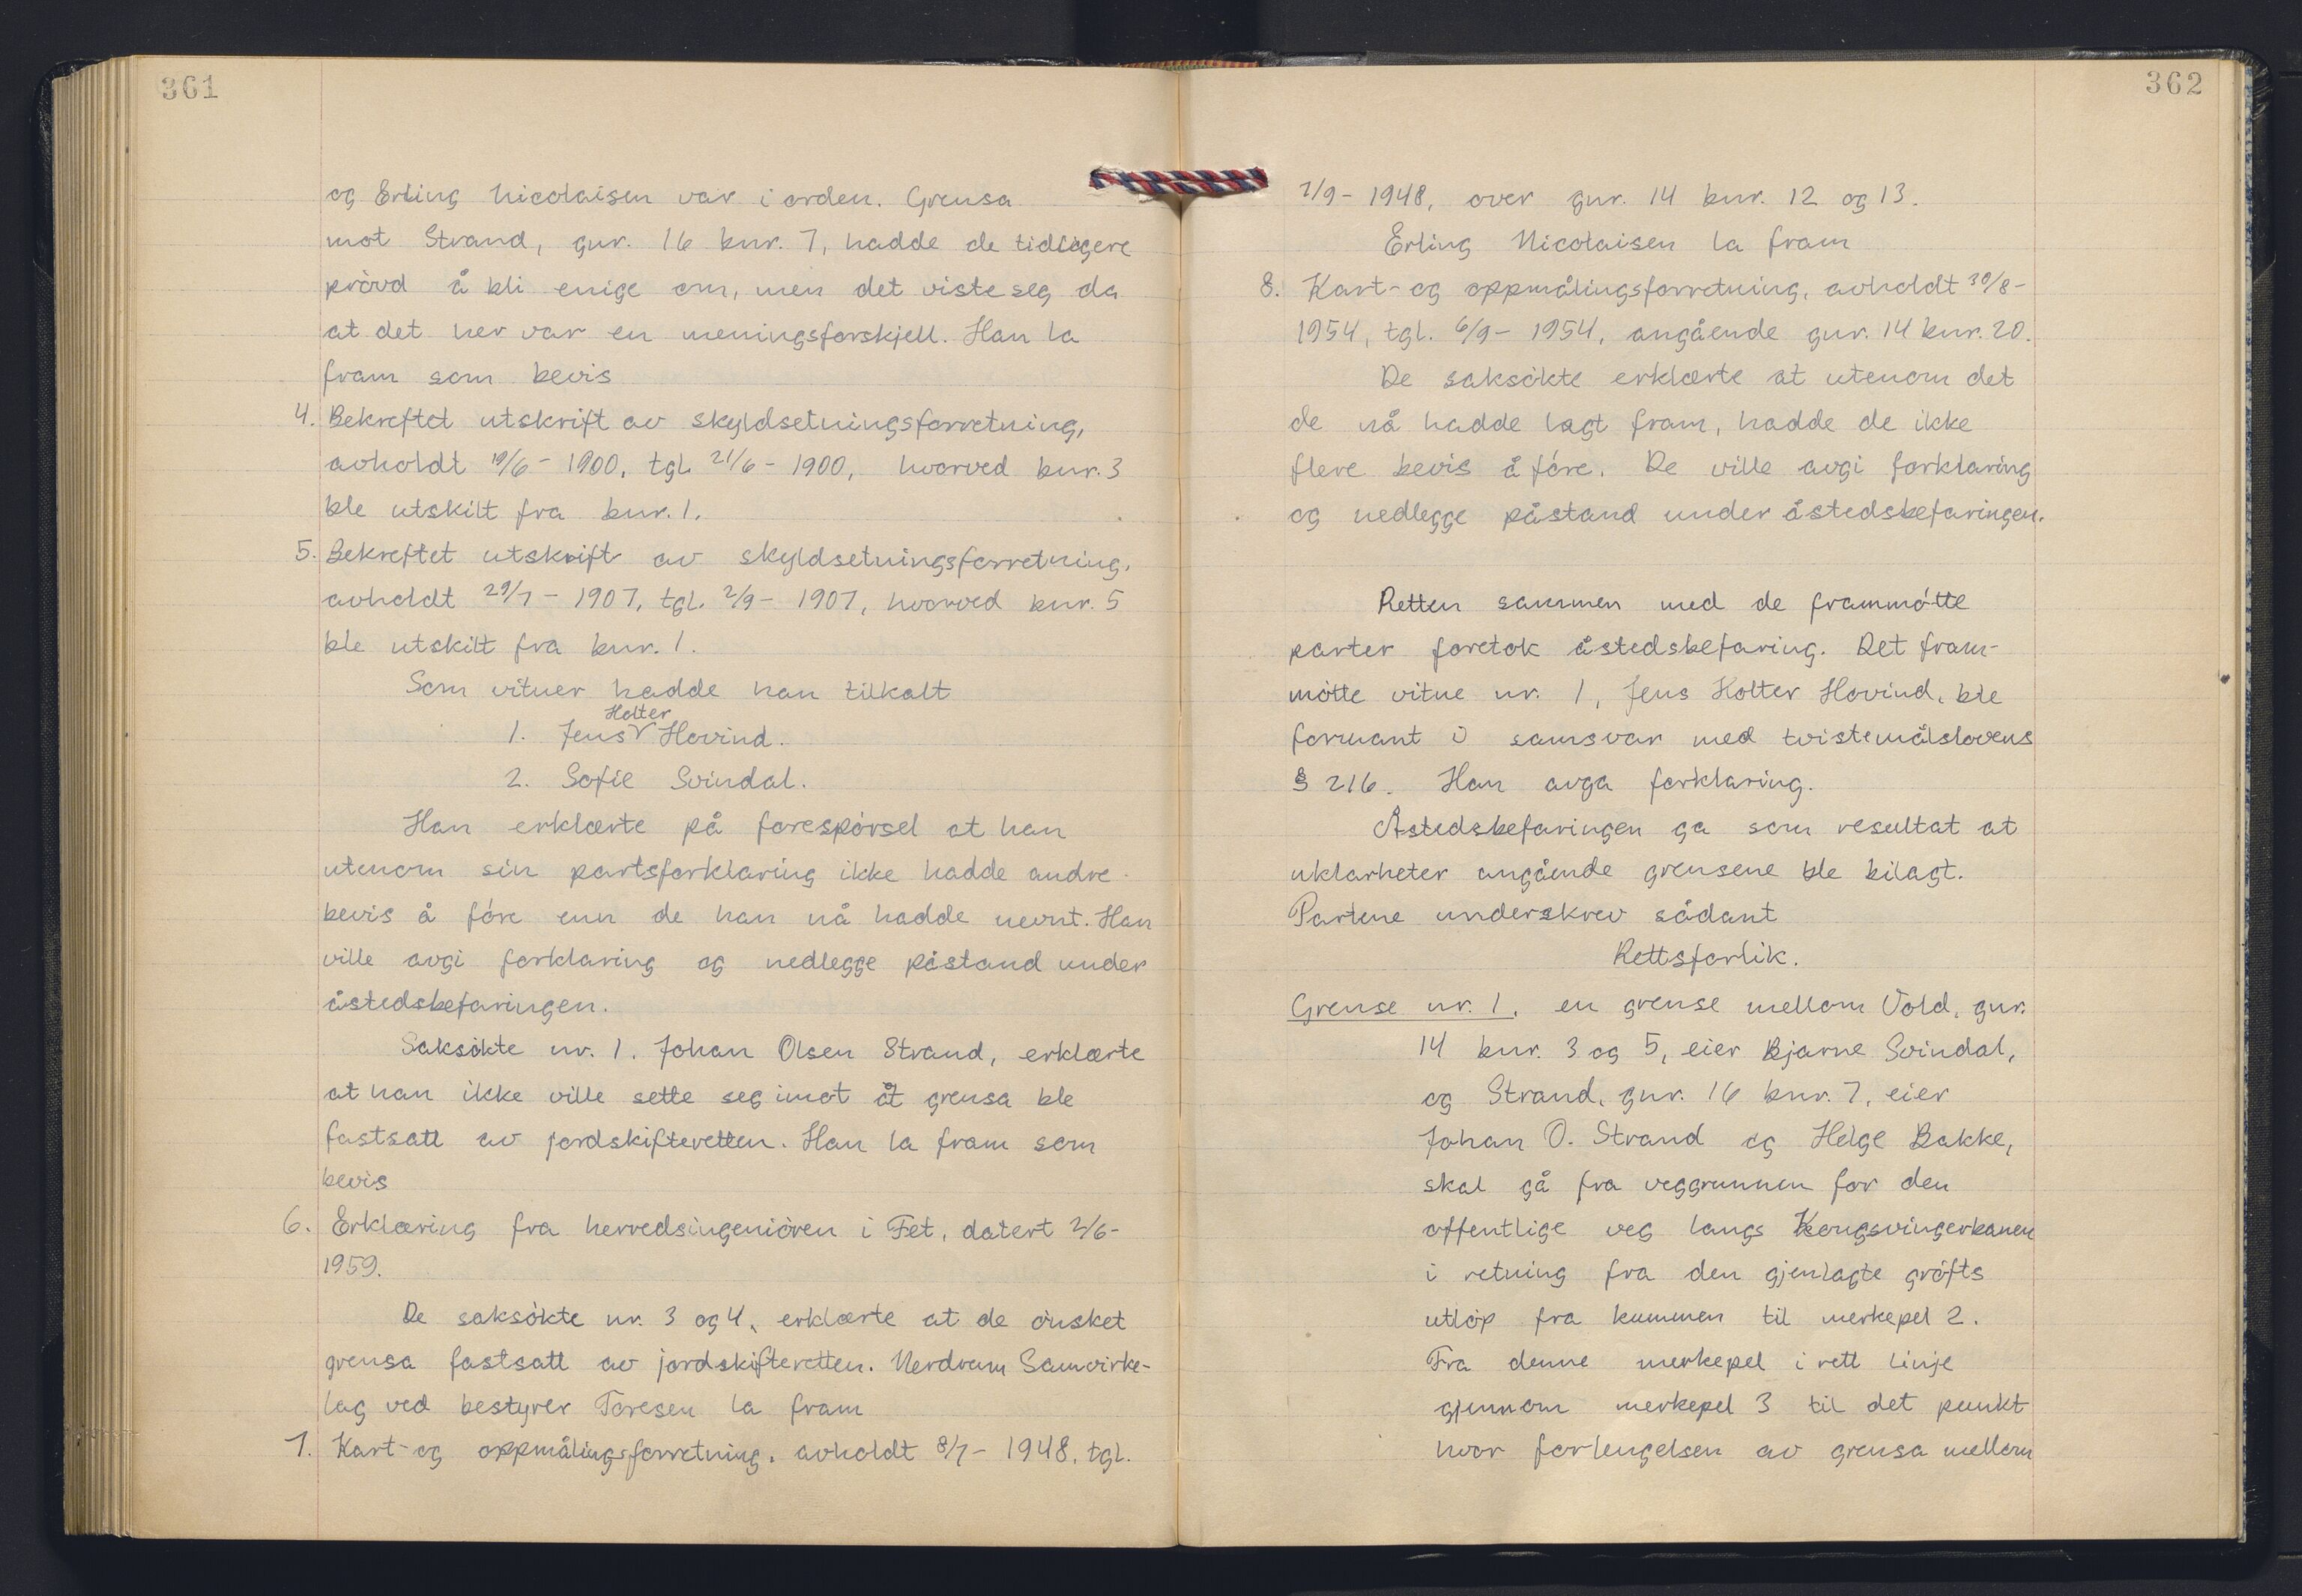 361
og Erling Nicolaisen var i orden. Grensa
mot Strand, gnr. 16 bnr. 7, hadde de tidligere
prövd å bli enige om, men det viste seg da
at det her var en meningsforskjell. Han la
fram som bevis
4. Bekreftet utskrift av skyldsetningsforretning,
avholdt 19/6 - 1900, tgl. 21/6 - 1900, hvorved bnr. 3
ble utskilt fra bnr. 1.
5. Bekreftet utskrift av skyldsetningsforretning,
avholdt 29/7 - 1907, tgl. 2/9 - 1907, hvorved bnr. 5
ble utskilt fra bnr. 1.
Som vitner hadde han tilkalt
Holter
1. Jens Hovind.
2. Sofie Svindal.
Han erklærte på forespörsel at han
utenom sin partsforklaring ikke hadde andre
bevis å före enn de han nå hadde nevnt. Han
ville avgi forklaring og nedlegge påstand under
åstedsbefaringen.
Saksökte nr. 1. Johan Olsen Strand, erklærte
at han ikke ville sette seg imot at grensa ble
fastsatt av jordskifteretten. Han la fram som
bevis
6. Erklæring fra herredsingeniören i Fet, datert 2/6-
1959.
De saksökte nr. 3 og 4, erklærte at de önsket
grensa fastsatt av jordskifteretten. Nerdrum Samvirke-
lag ved bestyrer Toresen la fram
7. Kart- og oppmålingsforretning, avholdt 8/7 - 1948, tgl.
362
2/9 - 1948, over gnr. 14 bnr. 12 og 13.
Erling Nicolaisen la fram
8. Kart- og oppmålingsforretning, avholdt 30/8 -
1954, tgl. 6/9 - 1954, angående gnr. 14 bnr. 20.
De saksökte erklærte at utenom det
de nå hadde lagt fram, hadde de ikke
flere bevis å före. De ville avgi forklaring
og nedlegge påstand under åstedsbefaringen.
Retten sammen med de frammötte
parter foretok åstedsbefaring. Det fram-
mötte vitne nr. 1, Jens Holter Hovind, ble
formant i samsvar med tvistemålslovens
§ 216. Han avga forklaring.
Åstedsbefaringen ga som resultat at
uklarheter angående grensene ble bilagt.
Partene underskrev sådant
Rettsforlik.
Grense nr. 1, en grense mellom Vold, gnr.
14 bnr. 3 og 5, eier Bjarne Svindal,
og Strand, gnr. 16 bnr. 7, eier
Johan O. Strand og Helge Bakke,
skal gå fra veggrunnen for den
offentlige veg langs Kongsvingerbanen
i retning fra den gjenlagte gröfts
utlöp fra kummen til merkepel 2.
Fra denne merkepel i rett linje
gjennom merkepel 3 til det punkt
hvor forlengelsen av grensa mellom